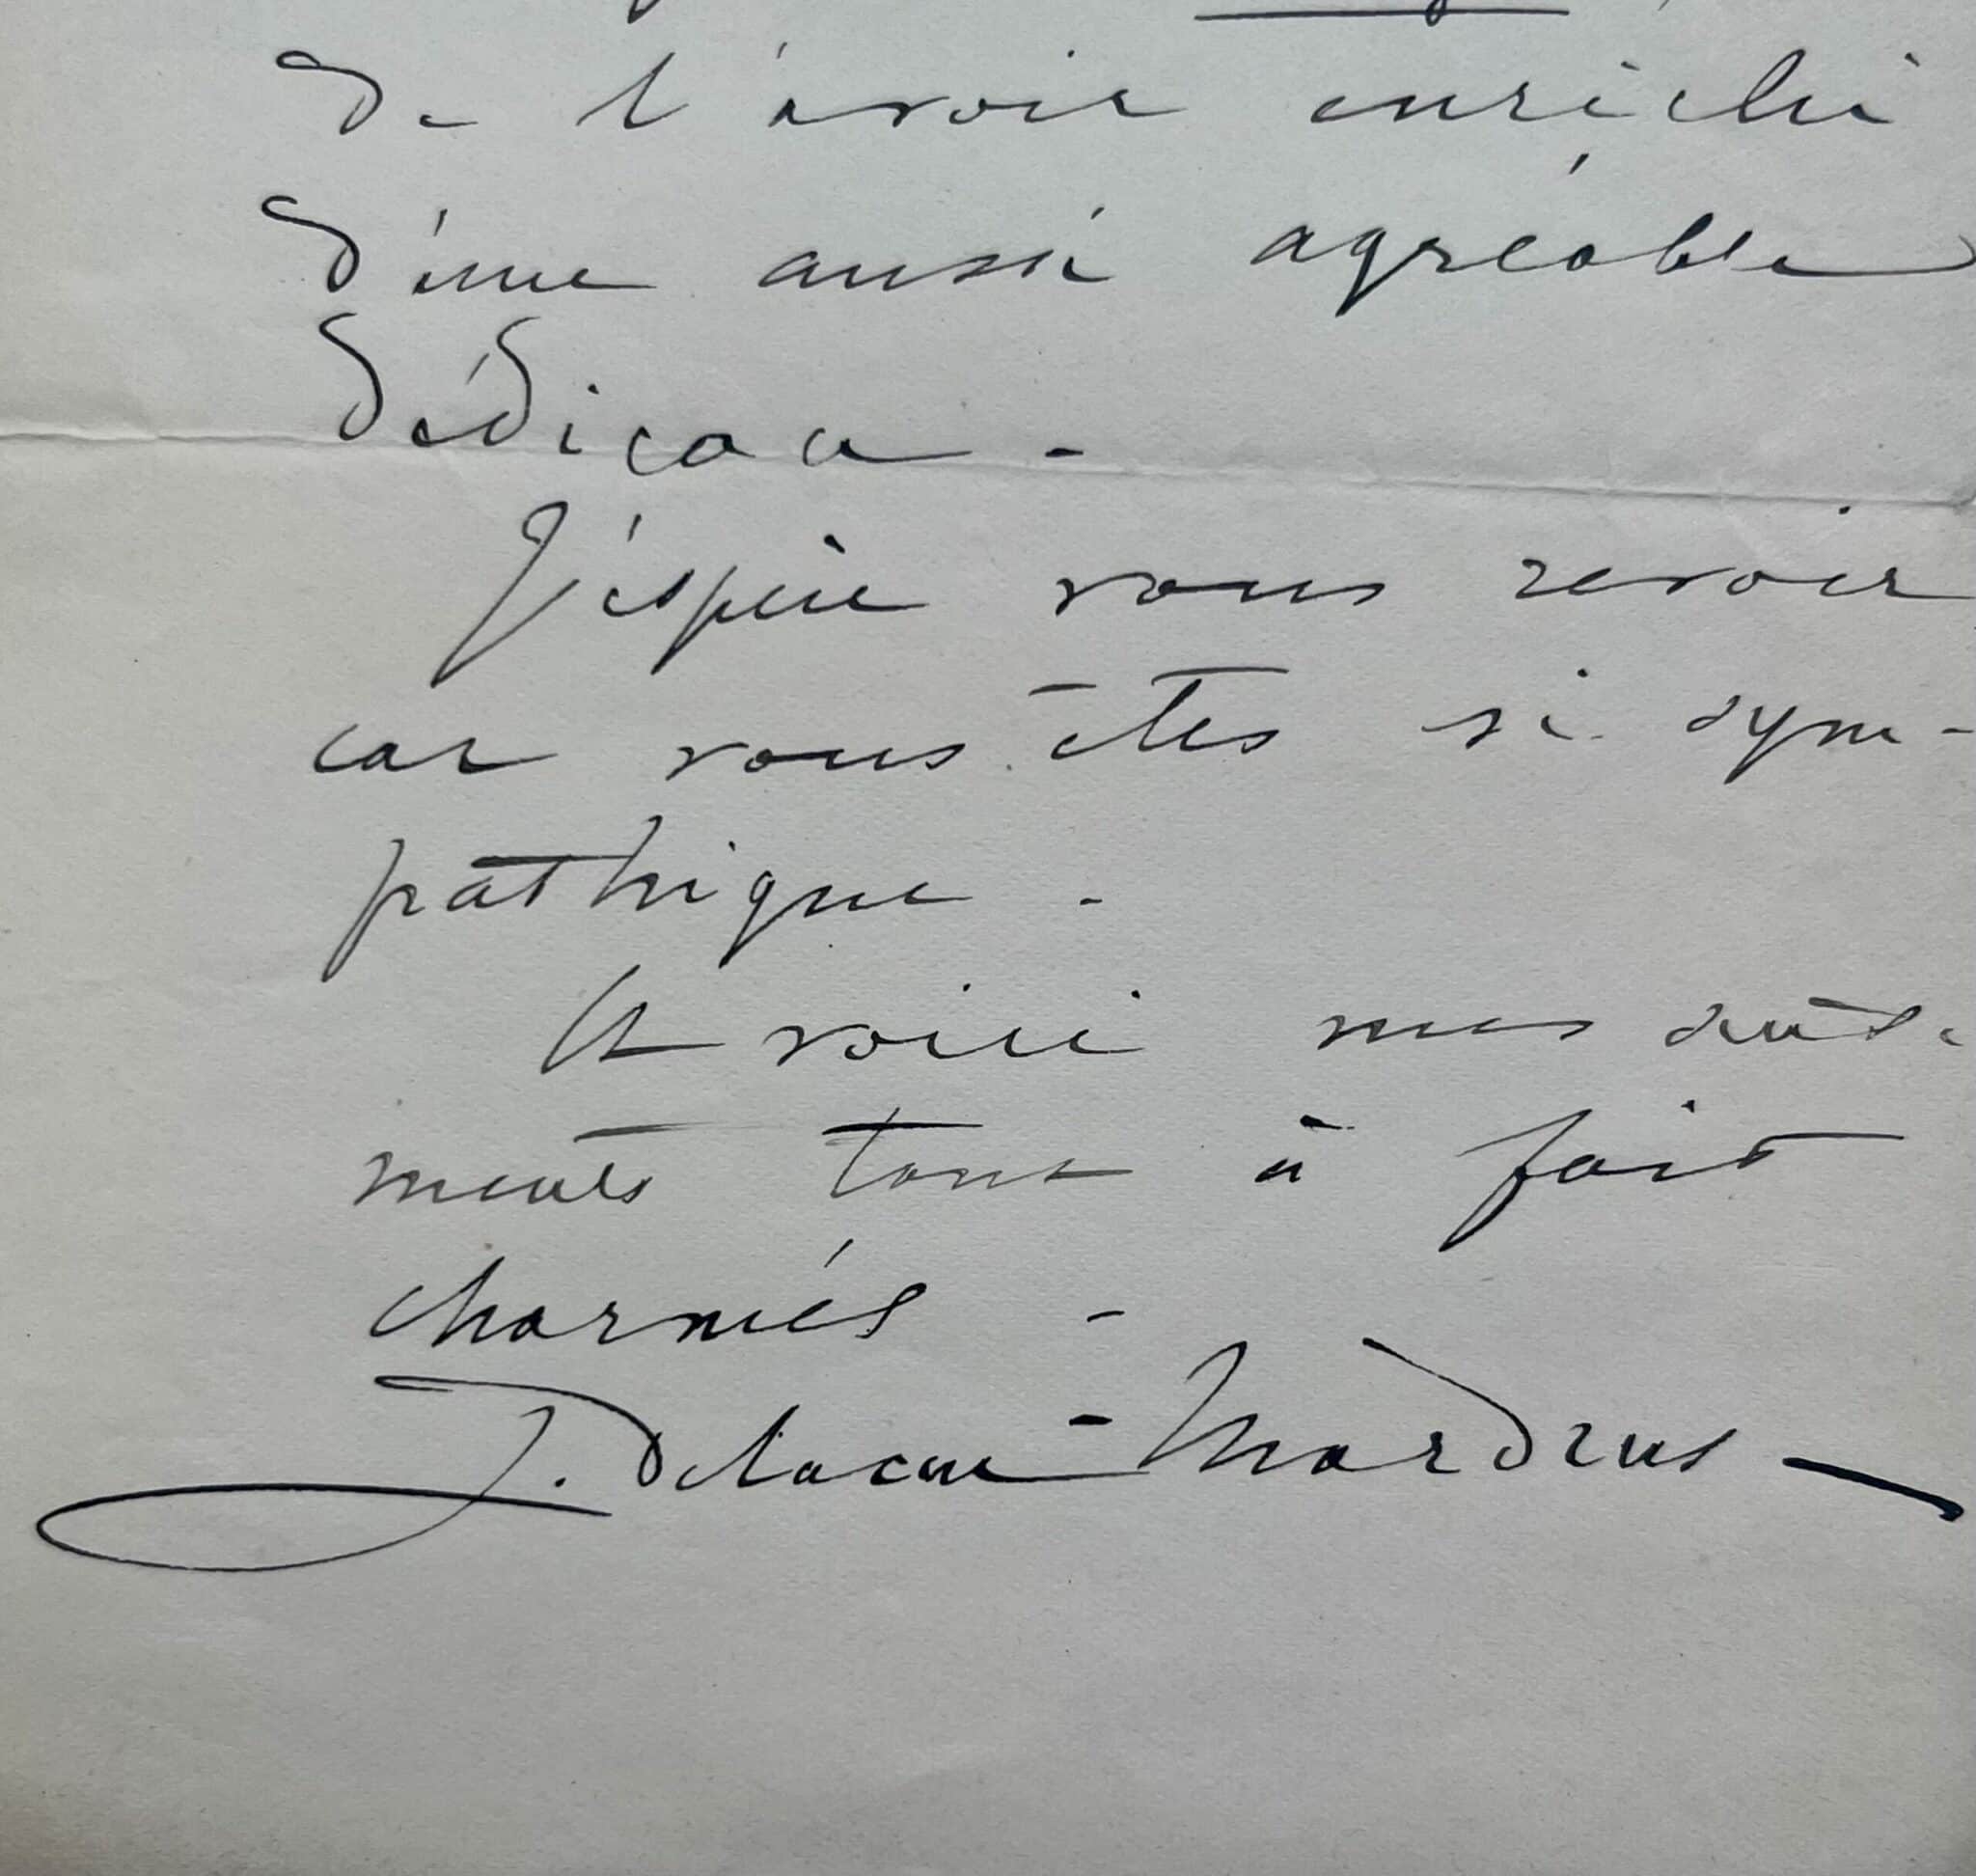 de l'avoir enrichi
d'une aussi agréable
dédicace -
J'espère vous revoir
car vous êtes si sym-
pathique .
Et voici mes
ments tout à fait
charmés -
J. Delarue-Mardrus